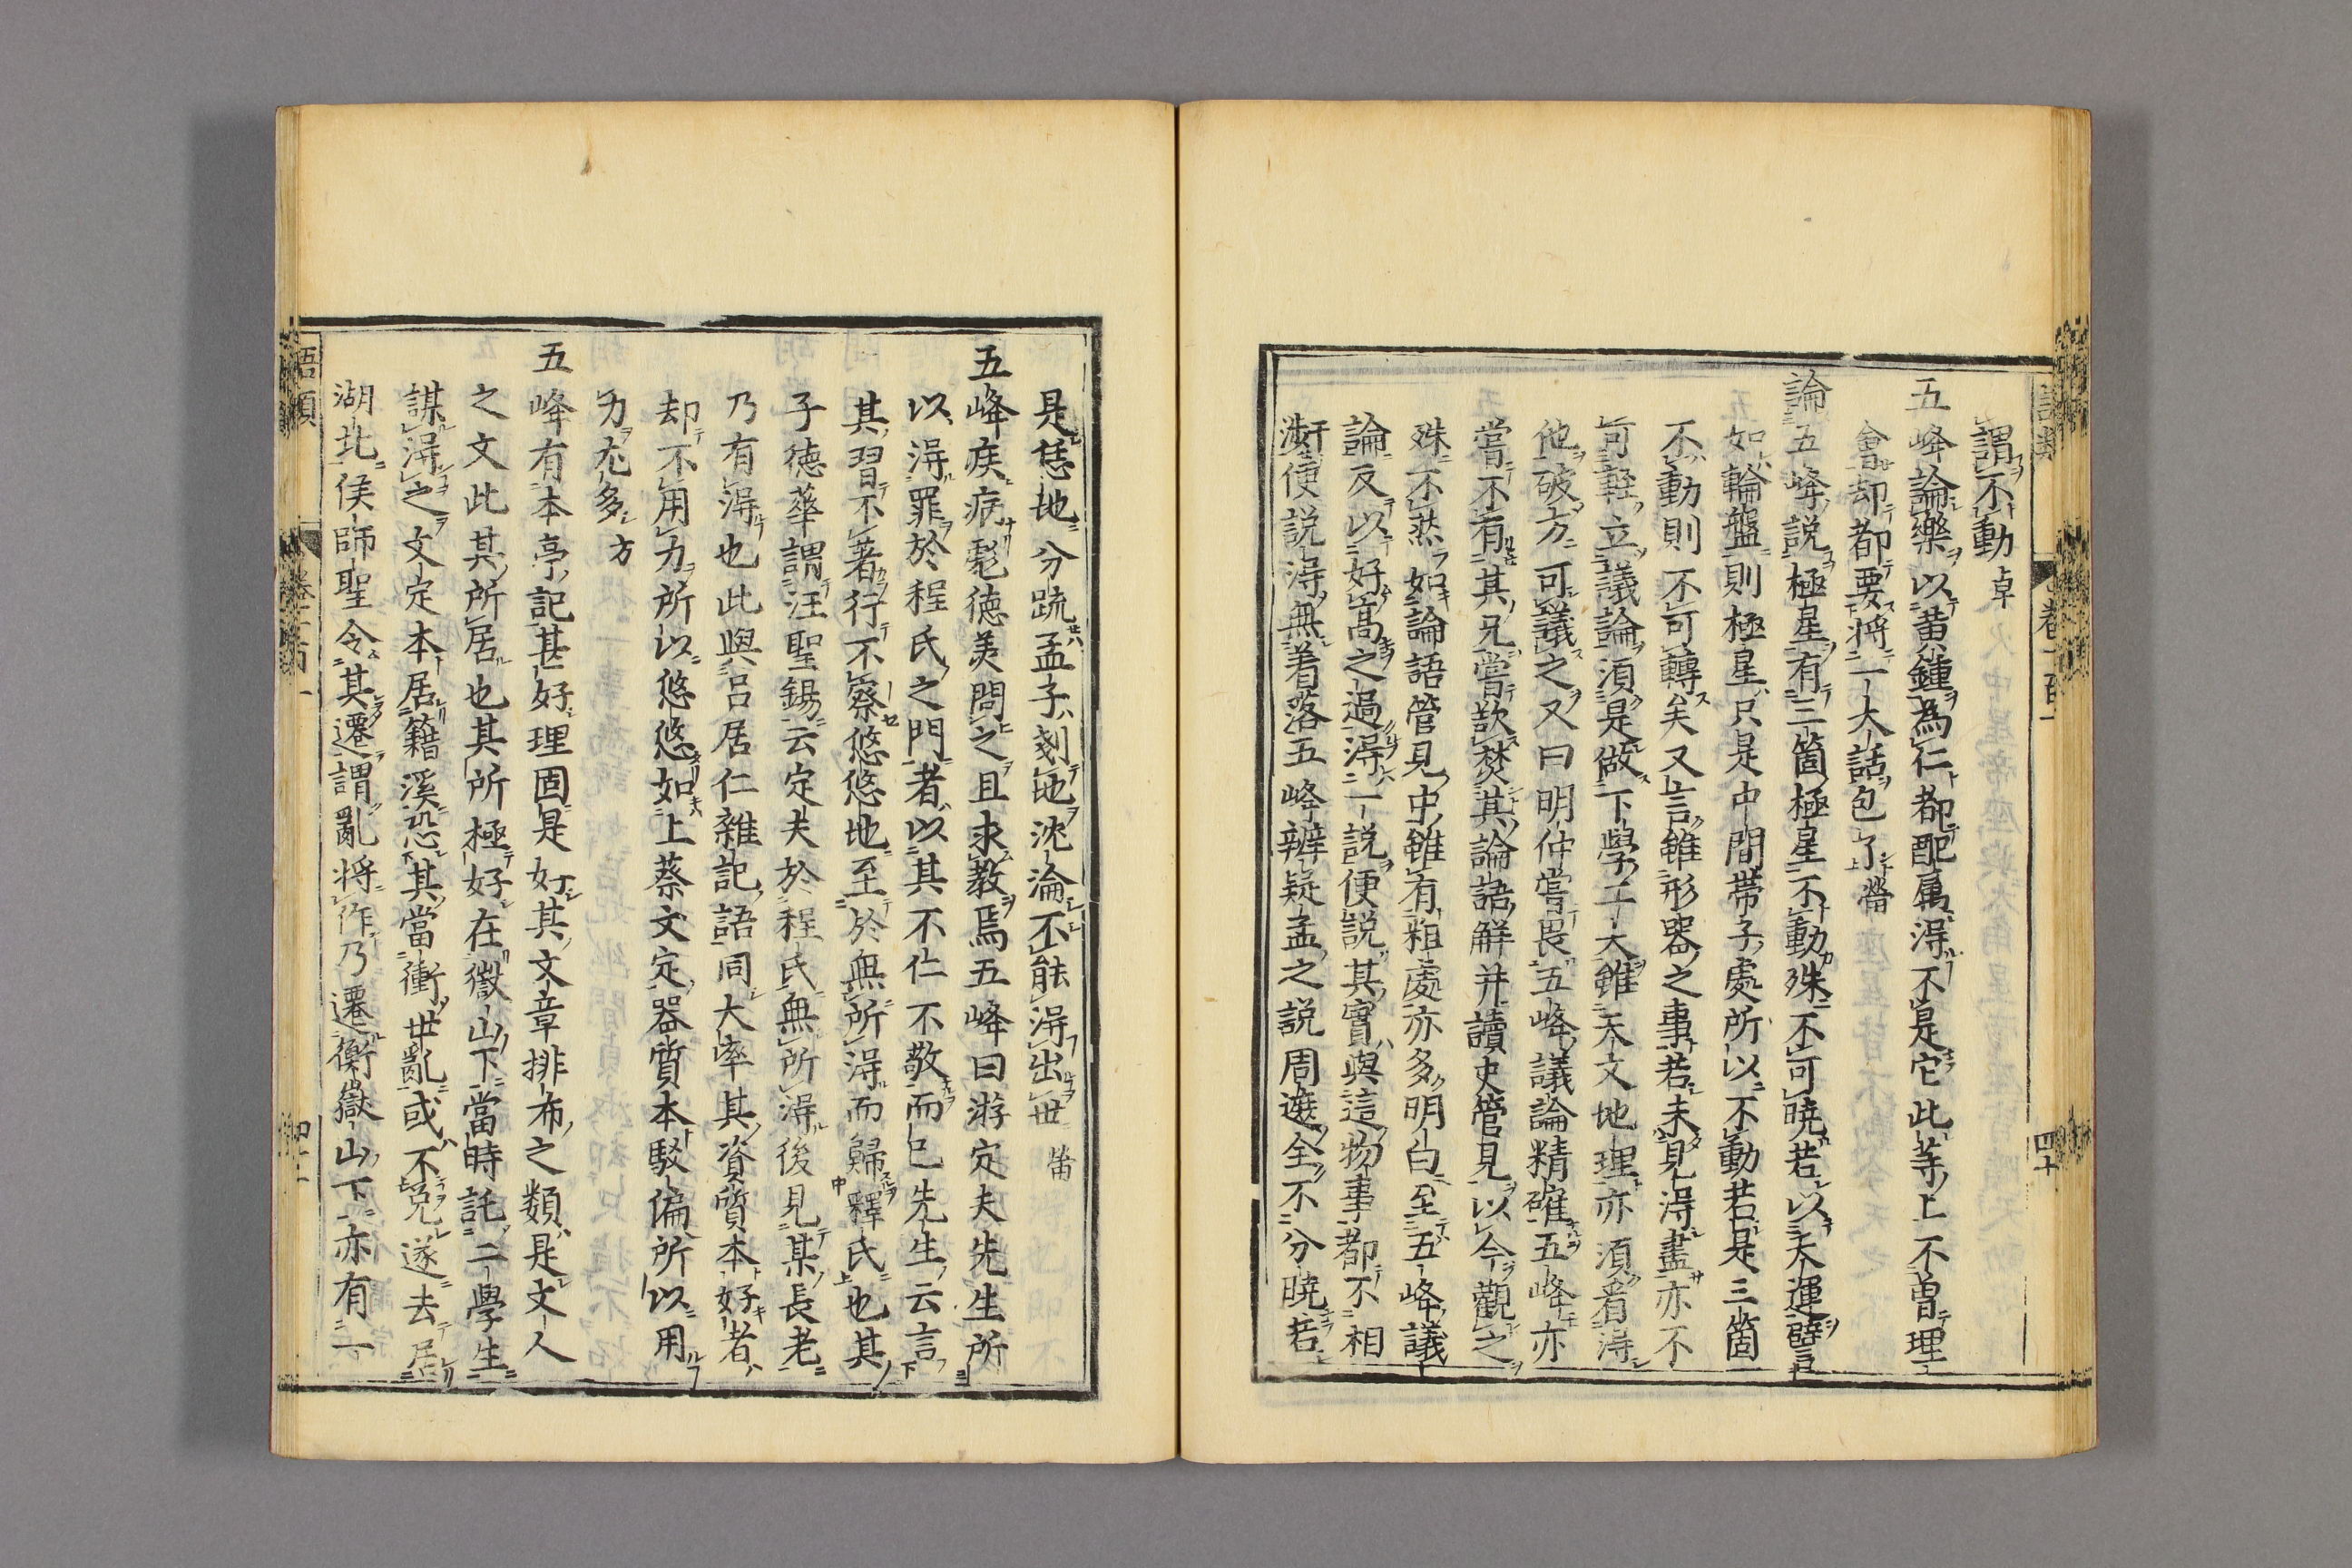 語類 卷一百一 四十
謂不動卓
五峰論樂以黄鐘為仁都配屬得不是它此等上不曾理
會却都要將一大話包了㽦
論五峰說極星有三箇極星不動殊不可曉若以天運譬
如輪盤則極星只是中間帶子處所以不動若是三箇
不動則不可轉矣又言雖形器之事若未見得盡亦不
可輕立議論須是做下學工夫雖天文地理亦須看得
他破方可議之又曰明仲嘗畏五峰議論精確五峰亦
嘗不有其兄嘗欲焚其論語解并讀史管見以今觀之
殊不然如論語管見中雖有粗處亦多明白至五峰議
論反以好高之過得一說便說其實與這物事都不相
干涉便說得無着落五峰辨疑孟之說周遮全不分曉若
是恁地分疏孟子剗地沈淪不能得出世㽦
五峰疾病彪德美問之且求教焉五峰曰游定夫先生所
以得罪於程氏之門者以其不仁不敬而已先生云言
其習不著行不察悠悠地至於無所得而歸釋氏也其
子德華謂汪聖錫云定夫於程氏無所得後見某長老
乃有得也此與呂居仁雜記語同大率其資質本好者
却不用力所以悠悠如上蔡文定器質本駁偏所以用
力尤多方
五峰有本亭記甚好理固是好其文章排布之類是文人
之文此其所居也其所極好在嶽山下當時託二學生
謀得之文定本居籍溪恐其當衝世亂或不免遂去居
湖北侯師聖令其遷謂亂將作乃遷衡嶽山下亦有一
語類 卷一百一